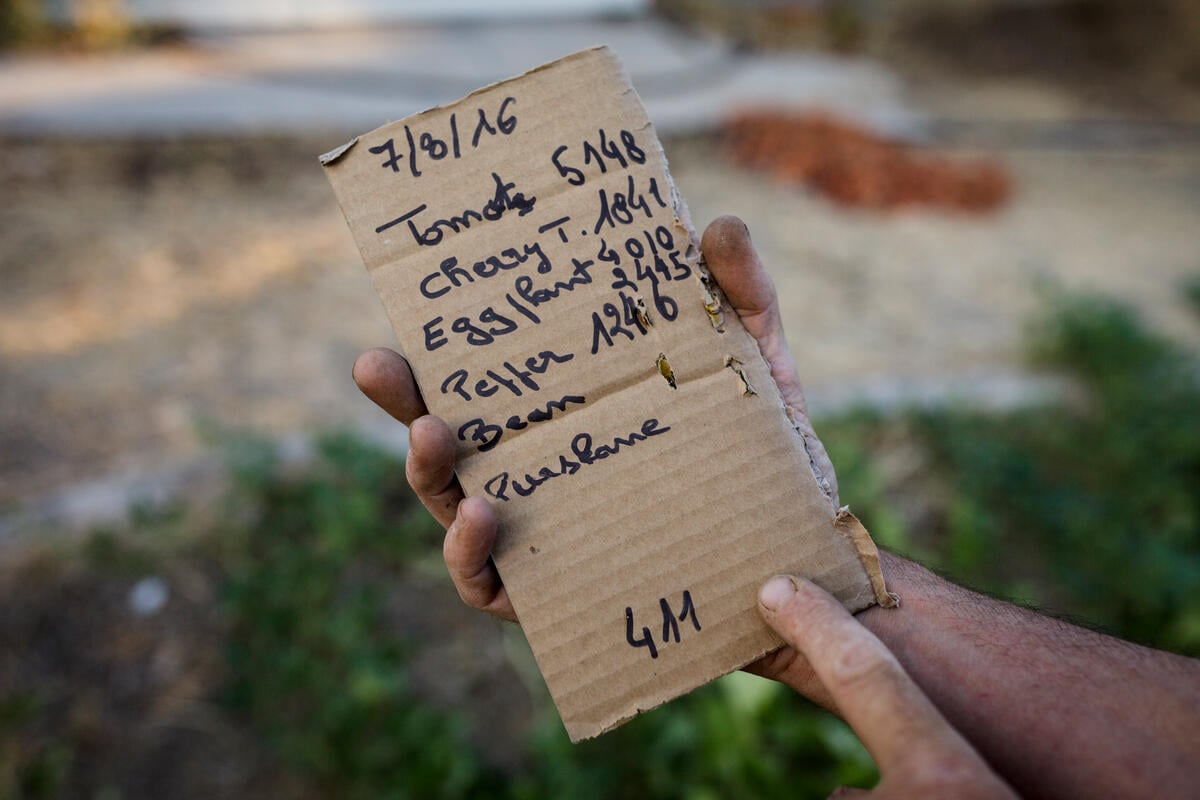 7/8/16
Tomate 5148
Cherry T. 1841
Eggplant 4010
Pepper 2445
Bean 1246
Purslane
411